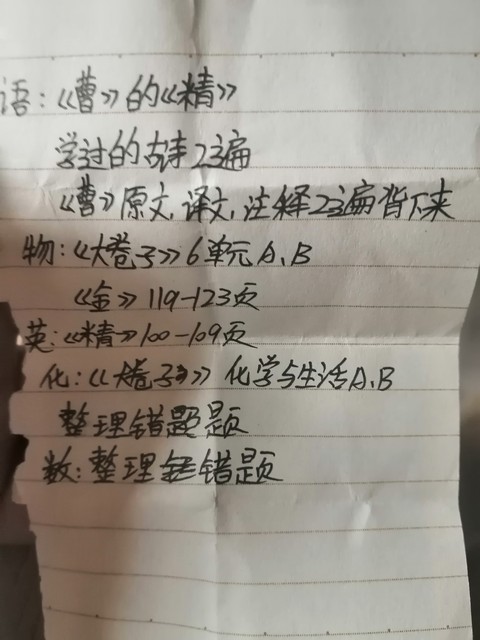 语:《曹》的《精》
学过的古诗23遍
《曹》原文,译文,注释23遍背下来
物:《大卷子》6单元A、B
《金》119-123页
英:《精》100-109页
化:《大卷子》化学与生活A、B
整理错题题
数:整理错题